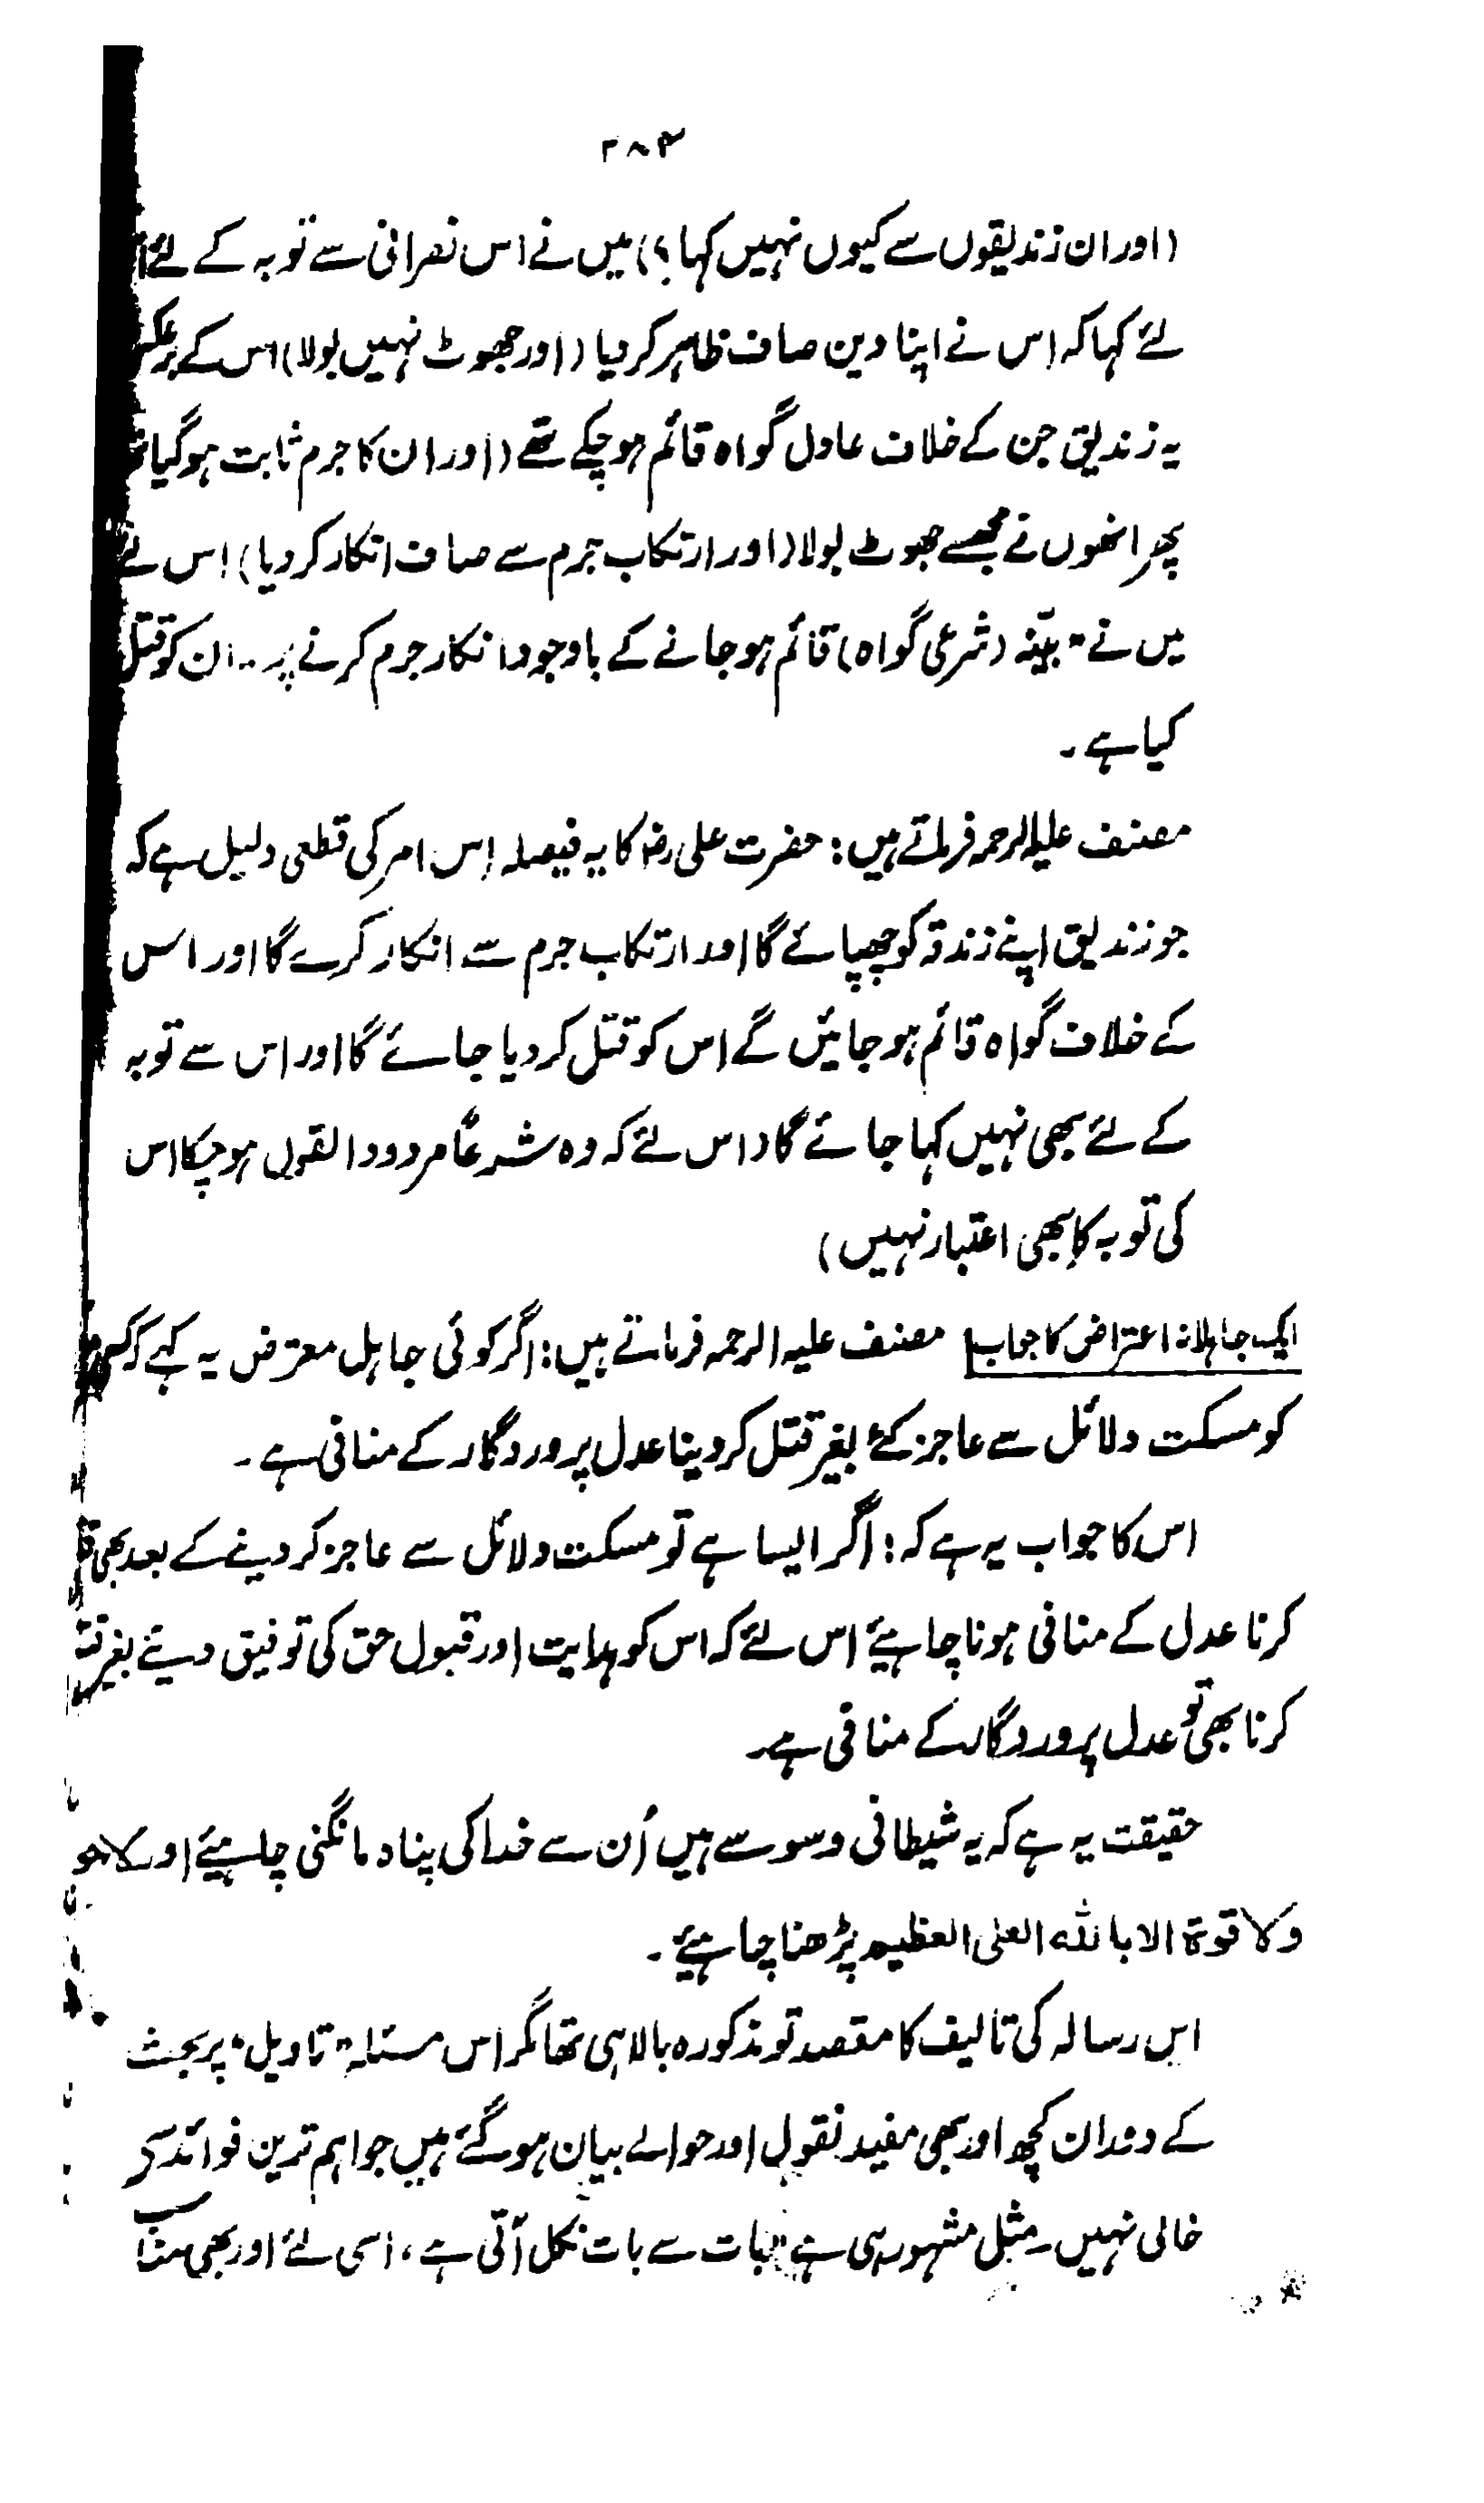 ۲۸۳
(اور ان زندیقوں سے کیوں نہیں کہا؟) میں نے اس نصرانی سے توبہ کے لئے
لئے کہا کہ اس نے اپنا دین صاف ظاہر کر دیا (اور جھوٹ نہیں بولا) اس کے برعکس
یہ زندیق جن کے خلاف عادل گواہ قائم ہو چکے تھے (اور ان کا جرم ثابت ہو گیا تھا
پھر انھوں نے مجھ سے جھوٹ بولا (اور ارتکاب جرم سے صاف انکار کر دیا) اس لئے
میں نے "بیّنہ (شرعی گواہ) قائم ہو جانے کے باوجود انکار جرم کرنے پر ان کو قتل
کیا ہے۔
مصنف علیہ الرحمہ فرماتے ہیں: حضرت علی رضؓ کا یہ فیصلہ اس امر کی قطعی دلیل ہے کہ
جو زندیق اپنے زندقہ کو چھپائے گا اور ارتکاب جرم سے انکار کرے گا اور اس
کے خلاف گواہ قائم ہو جائیں گے اس کو قتل کر دیا جائے گا اور اس سے توبہ
کے لئے بھی نہیں کہا جائے گا (اس لئے کہ وہ شرعًا مردود القول ہو چکا اس
کی توبہ کا بھی اعتبار نہیں)
ایک جاہلانہ اعتراض کا جواب مصنف علیہ الرحمہ فرماتے ہیں: اگر کوئی جاہل معترض یہ کہے کہ
کو مسکت دلائل سے عاجز کئے بغیر قتل کر دینا عدل پروردگار کے منافی ہے۔
اس کا جواب یہ ہے کہ: اگر ایسا ہے تو مسکت دلائل سے عاجز کر دینے کے بعد بھی
کرنا عدل کے منافی ہونا چاہیئے اس لئے کہ اس کو ہدایت اور قبول حق کی توفیق دیئے بغیر
کرنا بھی تو عدل پروردگار کے منافی ہے۔
حقیقت یہ ہے کہ یہ شیطانی وسوسے ہیں اُن سے خدا کی پناہ مانگنی چاہیئے اور لاحو
ولا قوۃ الا باللہ العلی العظیم پڑھنا چاہیئے۔
اس رسالہ کی تالیف کا مقصد تو مذکورہ بالا ہی تھا مگر اس مسئلہ "تاویل" پر بحث
کے دوران کچھ اور بھی مفید نقول اور حوالے بیان ہو گئے ہیں جو اہم ترین فوائد سے
خالی نہیں۔ مثل مشہور ہی ہے "بات سے بات نکل آتی ہے، اسی لئے اور بھی